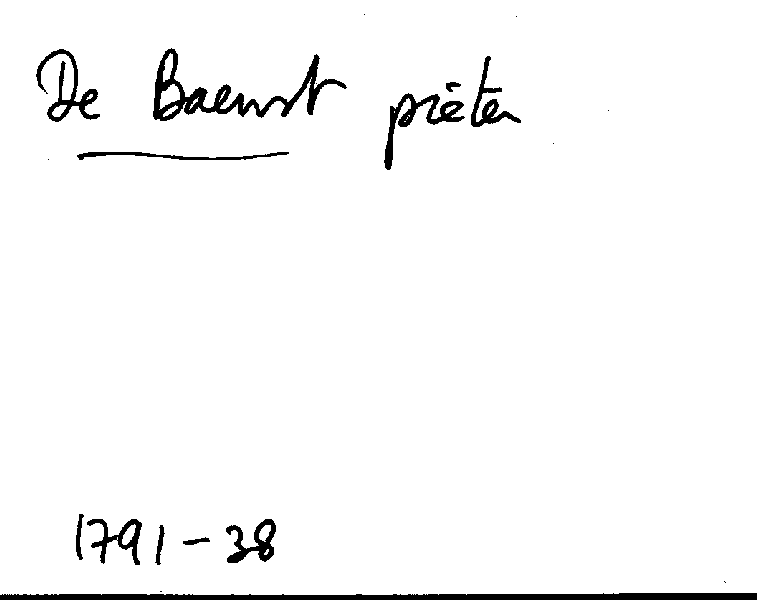 De Baenst pieter
1791-38